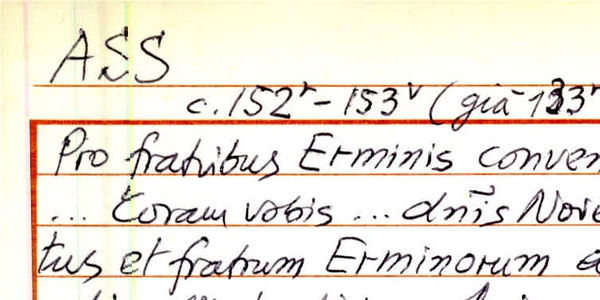 ASS
c. 152r - 153v (già 133r
Pro fratribus Erminis conven
... Coram vobis ... dñis Nove
tus et fratrum Erminorum a